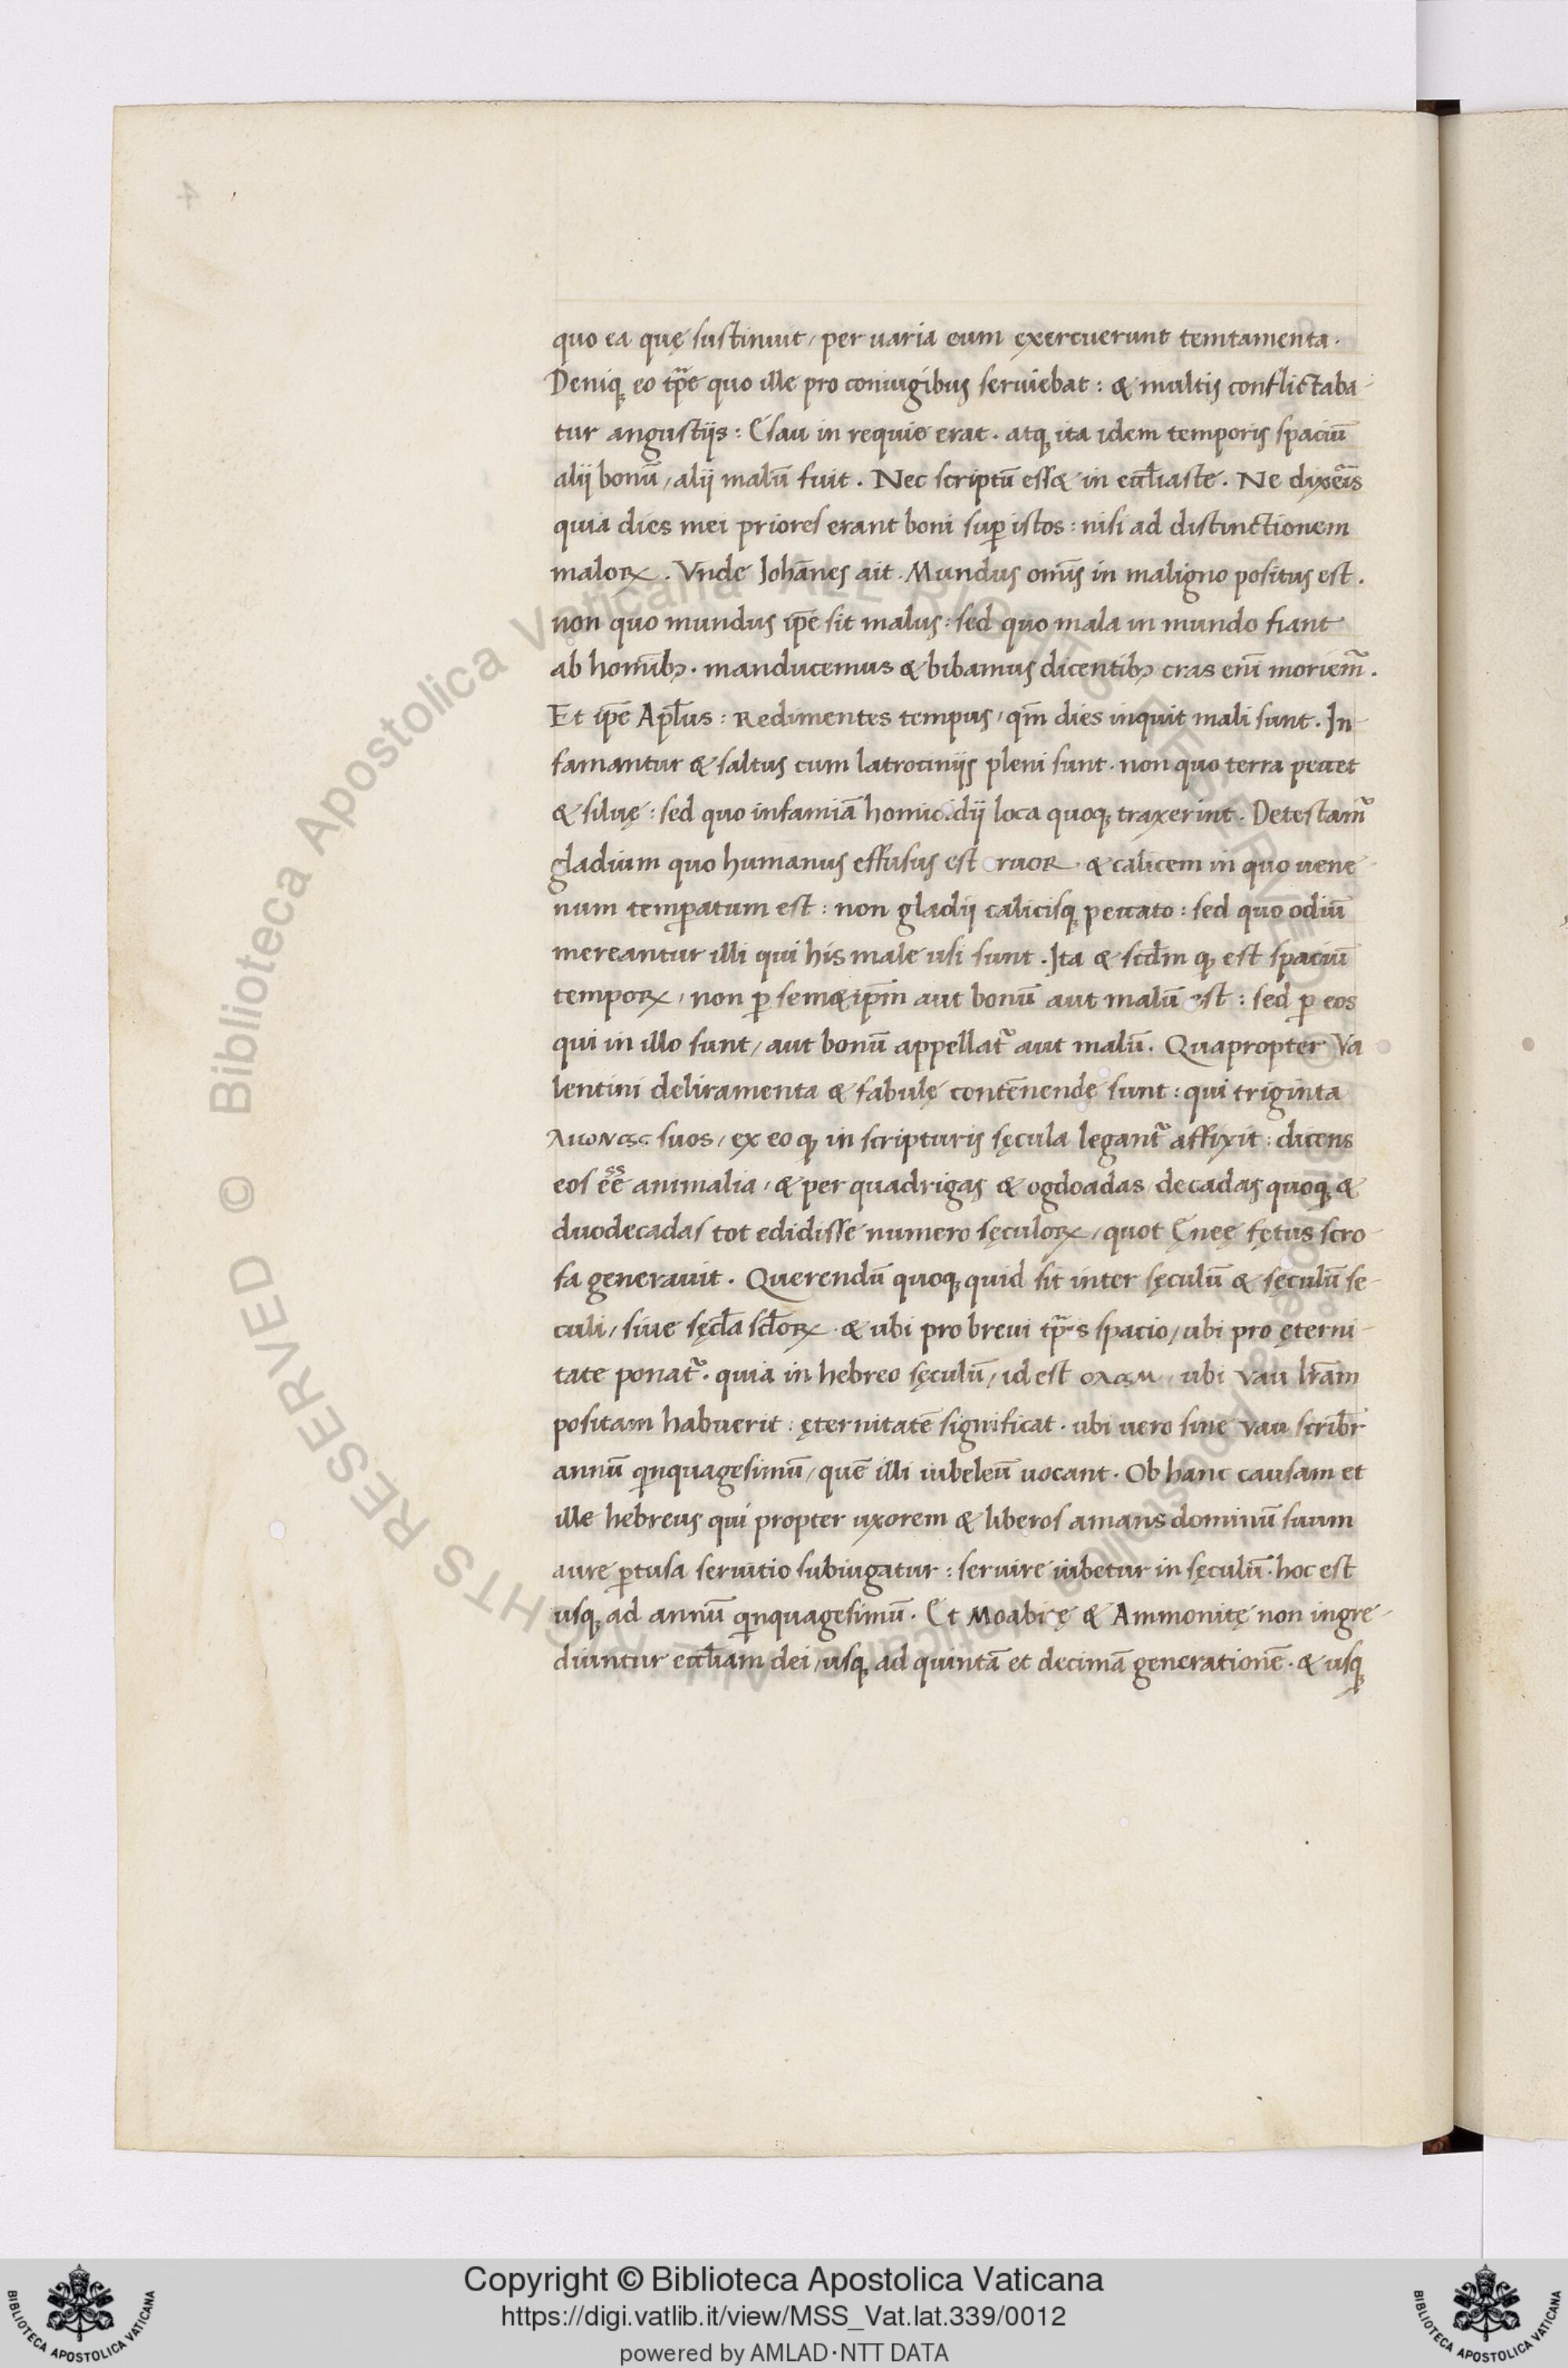 quo ea quę sustinuit, per uaria eum exercuerunt temtamenta.
Deniq; eo tp̄re quo ille pro coniugibus seruiebat: & multis conflictaba-
tur angustijs: Esau in requie erat. atq; ita idem temporis spaciū
alij bonū, alij malū fuit. Nec scriptū esset in eccl̄iaste. Ne dixeris
quia dies mei priores erant boni sup istos: nisi ad distinctionem
malorꝝ. Vnde Johānes ait. Mundus om̄is in maligno positus est.
non quo mundus ip̄e sit malus: sed quo mala in mundo fiant
ab homīb;. manducemus & bibamus dicentib; cras enī moriem̄.
Et ip̄e Apl̄us: Redimentes tempus, qm̄ dies inquit mali sunt. In-
famantur & saltus cum latrocinijs pleni sunt. non quo terra peccet
& siluę: sed quo infamiā homicidij loca quoq; traxerint. Detestam̄
gladium quo humanus effusus est cruor. & calicem in quo uene-
num temp̄atum est: non gladij calicisq; peccato: sed quo odiū
mereantur illi qui his male usi sunt. Ita & scd̄m q; est spaciū
temporꝝ, non p̄ semetip̄m aut bonū aut malū est: sed p̄ eos
qui in illo sunt, aut bonū appellat̄ aut malū. Quapropter Va
lentini deliramenta & fabulę contēnendę sunt: qui triginta
ΑΙωΝας suos, ex eo q; in scripturis sęcula legant̄ affixit: dicens
eos ēē animalia, & per quadrigas & ogdoadas, decadas quoq; &
duodecadas tot edidisse numero sęculorꝝ, quot Ęneę fętus scro-
fa generauit. Querendū quoq; quid sit inter sęculū & sęculū se-
culi, siue sęcl̄a scl̄orꝝ. & ubi pro breui tp̄ris spacio, ubi pro ęterni-
tate ponat̄. quia in hebreo sęculū, id est ολαμ, ubi Vau lr̄am
positam habuerit: ęternitatē significat. ubi uero sine Vau scribr̄
annū qinquagesimū, quē illi iubeleū uocant. Ob hanc causam et
ille hebreus qui propter uxorem & liberos amans dominū suum
aure p̄tusa seruitio subiugatur: seruire iubetur in sęculū. hoc est
usq; ad annū qinquagesimū. Et Moabitę & Ammonitę non ingre-
diuntur eccl̄iam dei, usq; ad quintā et decimā generationē. & usq;
4
Copyright © Biblioteca Apostolica Vaticana
https://digi.vatlib.it/view/MSS_Vat.lat.339/0012
powered by AMLAD·NTT DATA